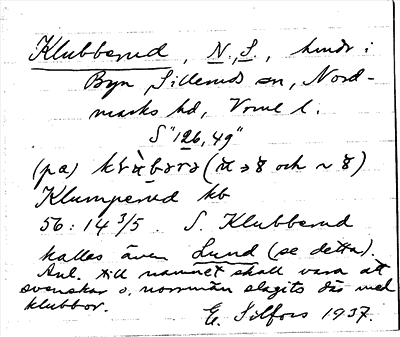 Klubberud, N., S., hmdr i
Byn, Sillerud sn, Nord-
marks hd, Vrml l.
S "126, 49"
(pa)
Klumperud kb
56:14 3/5 S. Klubberud
kallas även Lund (se detta).
Anl. till namnet skall vara att
svenskar o. norrmän slagits där med
klubbor.
E. Tilfors 1937.